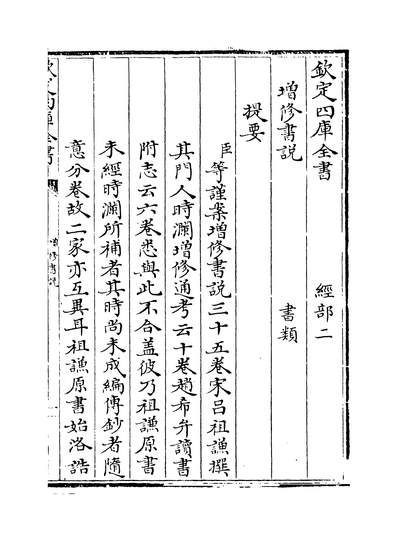 欽定四庫全書　　　　經部二
增修書説　　　　　　書類
提要
臣等謹案增修書説三十五卷宋吕祖謙撰
其門人時瀾增修通考云十卷趙希弁讀書
附志云六卷悉與此不合盖彼乃祖謙原書
未經時瀾所補者其時尚未成編傳鈔者隨
意分卷故二家亦互異耳祖謙原書始洛誥
欽定四庫全書
增修書説